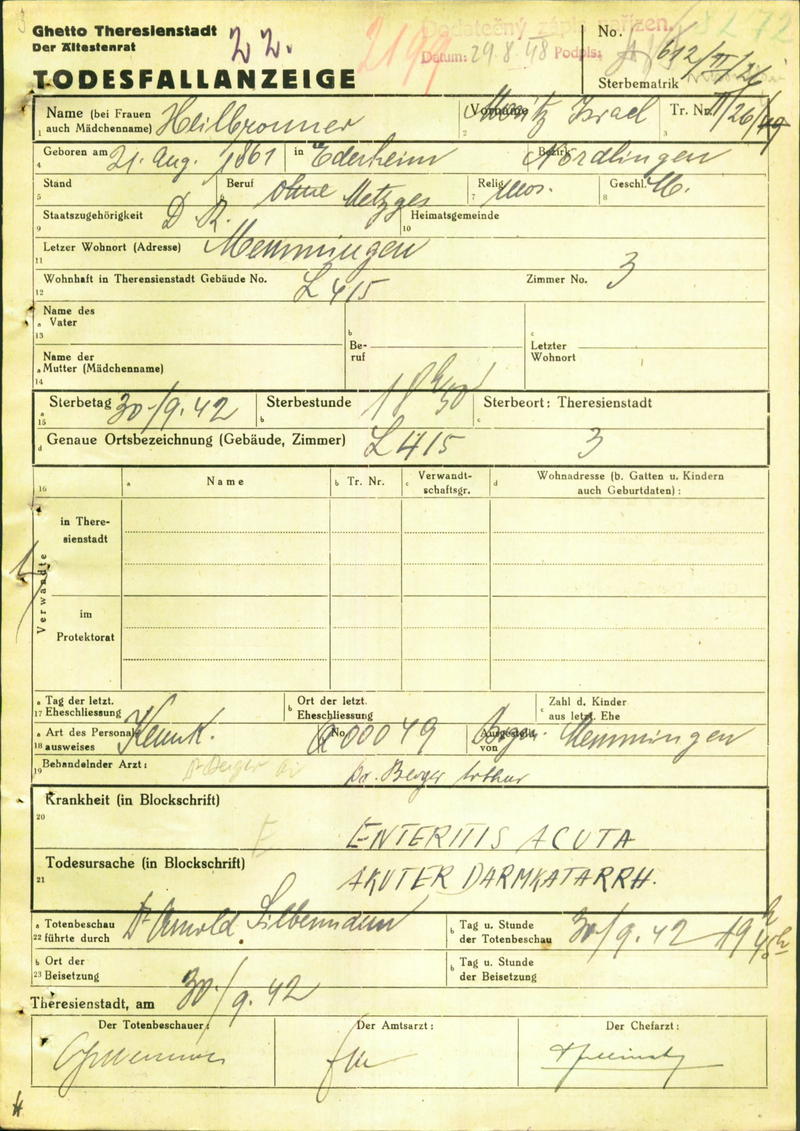 Ghetto Theresienstadt
Der Ältestenrat
22.
2199
Dodatečný zápis nařízen.
Datum: 29.8.48 Podpis:
No. 612/II/26
Sterbematrik
TODESFALLANZEIGE
Name (bei Frauen auch Mädchenname) Heilbronner
1
Vorname Moritz Israel
2
Tr. Nr. II/26/49
3
Geboren am 21. Aug. 1861 in Ederheim Bezirk Nördlingen
4
Stand Beruf ohne Metzger Relig. mos. Geschl. M.
5 7 8
Staatszugehörigkeit D. R. Heimatsgemeinde
9 10
Letzer Wohnort (Adresse) Memmingen
11
Wohnhaft in Therensienstadt Gebäude No. L 415 Zimmer No. 3
12
Name des
a Vater
13
b Beruf
c Letzter Wohnort
Name der
a Mutter (Mädchenname)
14
a Sterbetag 30./9.42 b Sterbestunde 18h 30 c Sterbeort: Theresienstadt
15
d Genaue Ortsbezeichnung (Gebäude, Zimmer) L 415 3
16 a Name b Tr. Nr. c Verwandtschaftsgr. d Wohnadresse (b. Gatten u. Kindern auch Geburtdaten):
Verwandte
in Theresienstadt
im Protektorat
a Tag der letzt.
17 Eheschliessung
b Ort der letzt. Eheschliessung
c Zahl d. Kinder aus letzt. Ehe
a Art des Personalausweises Kennk. No. 00049 Ausgestellt von Memmingen
18
Behandelnder Arzt: Dr. Berger Lothar
19
Krankheit (in Blockschrift)
20
ENTERITIS ACUTA
Todesursache (in Blockschrift)
21
AKUTER DARMKATARRH.
a Totenbeschau
22 führte durch Dr Arnold
b Tag u. Stunde der Totenbeschau 30./9.42 19h
b Ort der
23 Beisetzung
b Tag u. Stunde der Beisetzung
Theresienstadt, am 30./9.42
Der Totenbeschauer: Der Amtsarzt: Der Chefarzt: